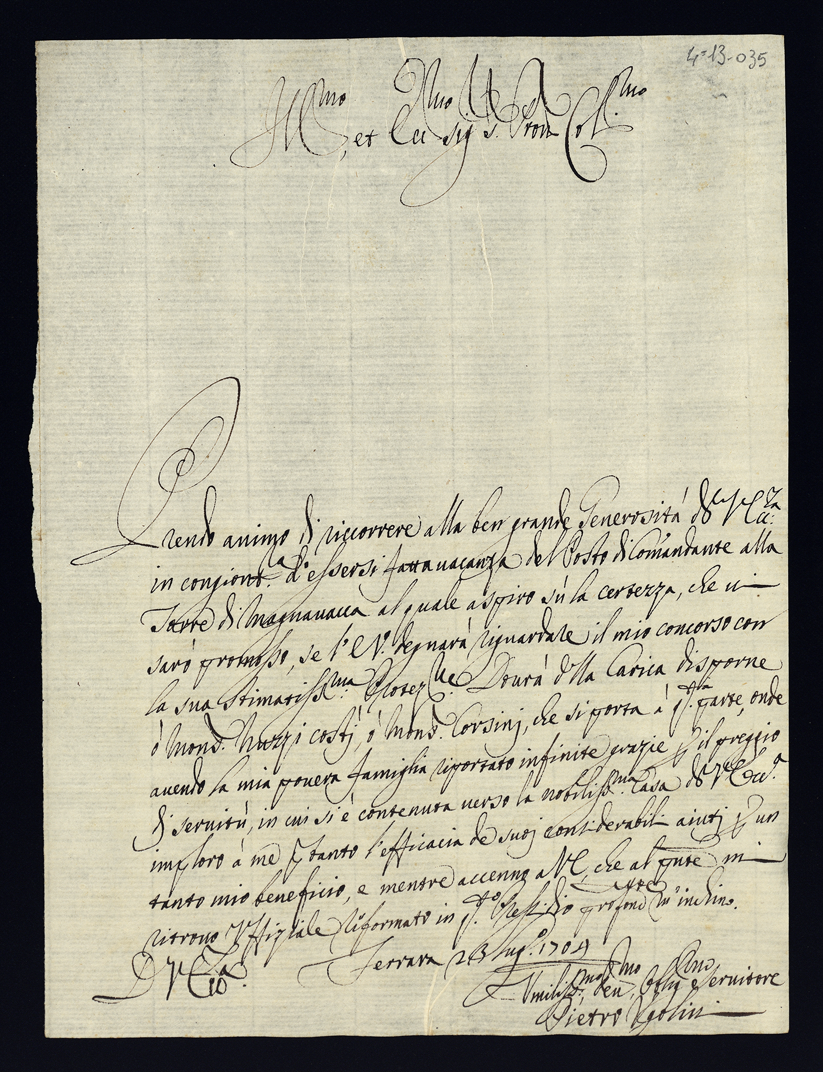 4-13-035
Ill.mo, et Ecc.mo Sig.r S.r Pron Col.mo
Prendo animo di riccorrere alla ben grande Generosità di V. Ecc.za
in congiont.a d'essersi fatta vacanza del Posto di Comandante alla
Torre di Magnavacca al quale aspiro sù la certezza, che vi
sarò promosso, se l'E.V. degnarà riguardare il mio concorso con
la sua stimatiss.ma Protez.ne. Dourà d.lla Carica disporne
ò Mons. Nuzzi costì, ò Mons. Corsini, che si porta à q.sta parte, onde
auendo la mia pouera famiglia riportato infinite grazie p il preggio
di seruitù, in cui si è contenuta verso la nobiliss.ma Casa di V. Ecc.a
imploro à me p tanto l'efficacia de suoj considerabili aiuti p un
tanto mio beneficio, e mentre accenno a VE, che al pnte mi
ritrouo Uffiziale riformato in q.sto Presidio profond.te m'inchino.
Di V. Ecc.za
Ferrara 23 lug.o 1704
Umiliss.mo Deu.mo Obl.mo Seruitore
Pietro